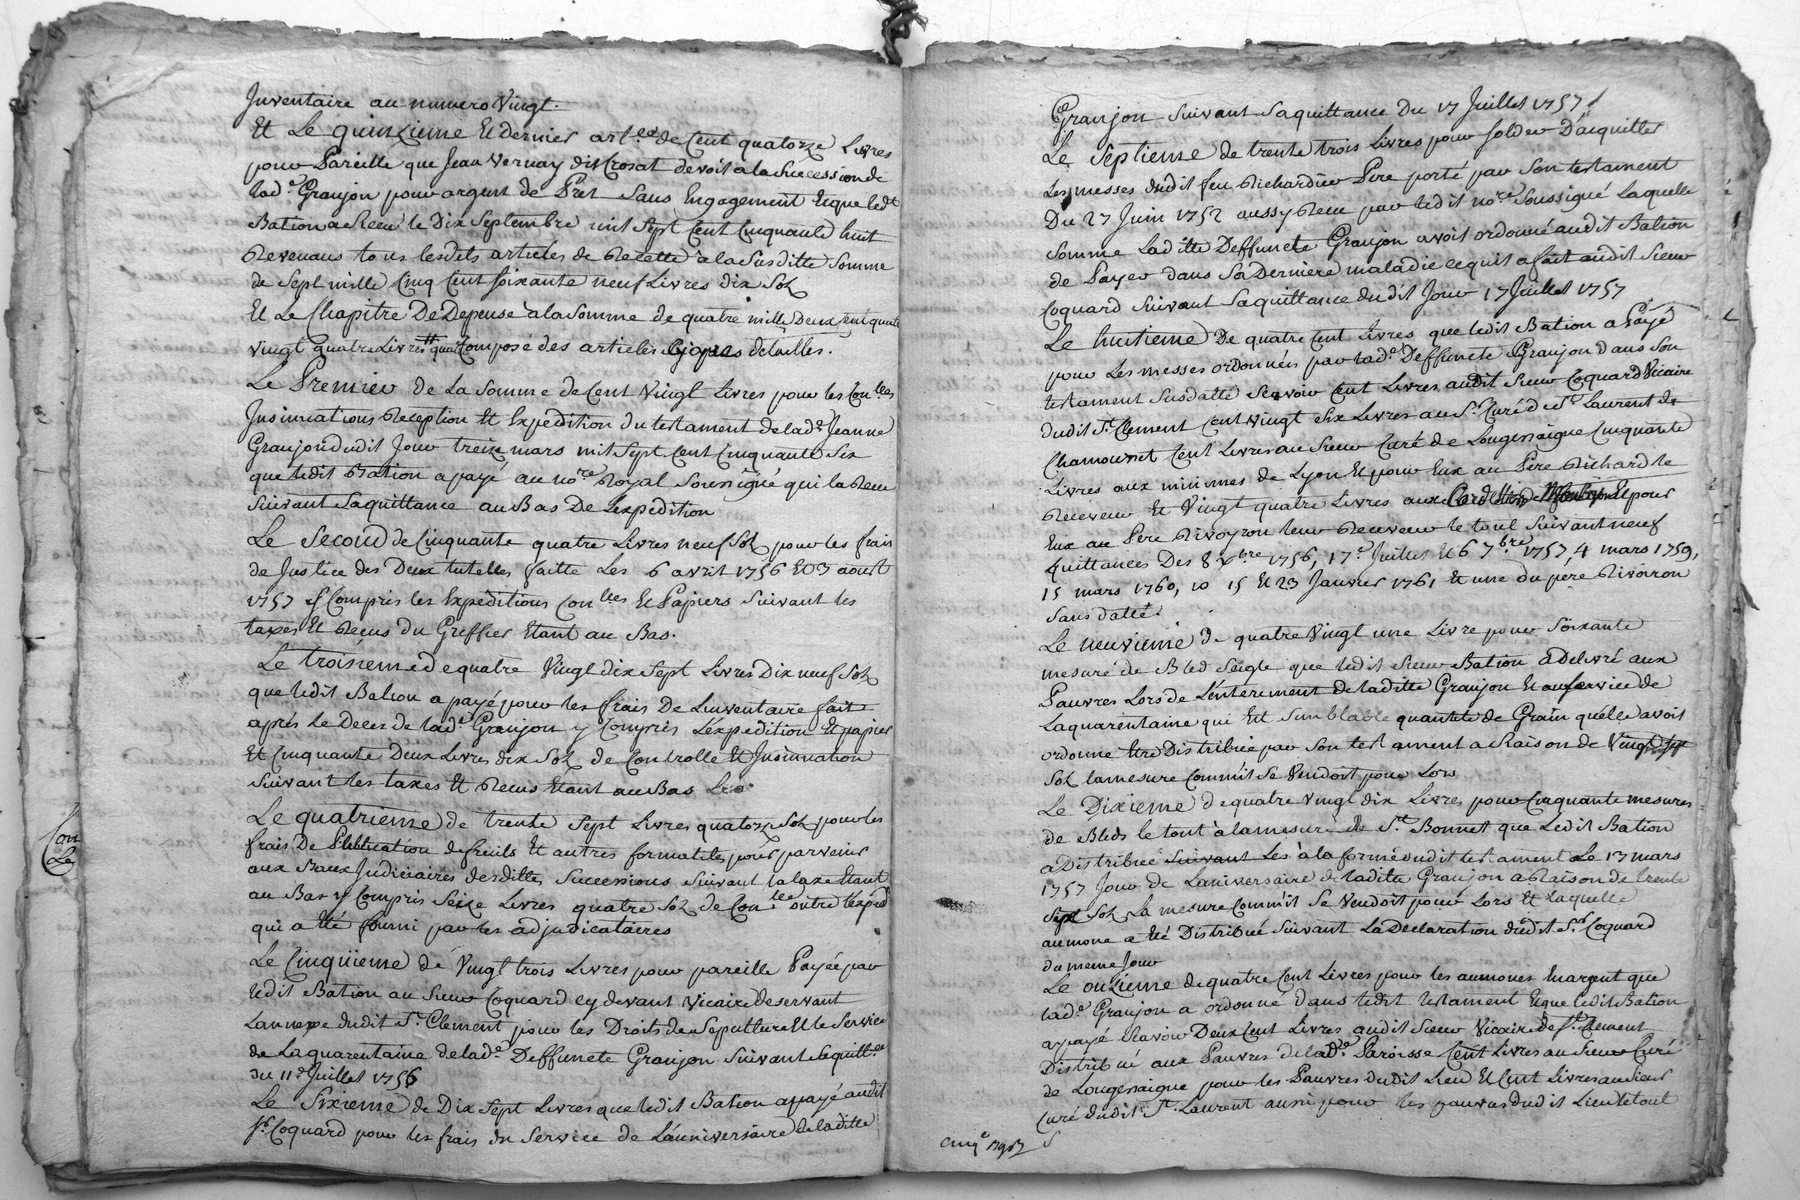 Inventaire au numero Vingt.
Et Le quinzieme Et dernier art.^cle de Cent quatorze Livres
pour Pareille que Jean Vernay dit Crosat devoit a la Succession de
lad.^e Granjon pour argent de Pret Sans Engagement Et que led.^t
Bation a Receu le Dix Septembre mil Sept Cent Cinquante huit
Revenans tous lesdits articles de Recette a la Susditte Somme
de Sept mille Cinq Cent soixante neuf Livres dix Sols
Et Le Chapitre De Depense a la Somme de quatre mille Deux Cent quatre
vingt quatre Livres composé des articles detailles.
Le Premier de La Somme de Cent Vingt Livres pour les Con.^lles
Insinuations Reception Et Expedition du testament de lad.^e Jeanne
Granjon dudit Jour treize mars mil Sept Cent Cinquante Six
que ledit Bation a payé au no.^re Royal Soussigné qui la Receu
Suivant Sa quittance au Bas De L'expedition
Le Second de Cinquante quatre Livres neuf Sols pour les frais
de Justice des Deux tutelles faitte Les 6 avril 1756 Et 3 aoust
1757 y Compris les Expeditions Con.^lles Et Papiers Suivant les
taxes Et Reçus du Greffier Etant au Bas.
Le troisieme de quatre Vingt dix Sept Livres Dix neuf Sols
que ledit Bation a payé pour les frais De Linventaire fait
aprés Le Deces de lad.^e Granjon y Compris L'expedition Et papier
Et Cinquante Deux Livres dix Sols de Controlle Et Insinuation
Suivant les taxes Et Recus Etant au Bas
Le quatrieme de trente Sept Livres quatorze Sols pour les
frais De Publication defreuils Et autres formalites pour parvenir
aux Baux Judiciaires desdittes Successions Suivant la taxe Etant
au Bas y Compris Seize Livres quatre Sols de Con.^lle outre l'exped.
qui a Eté fourni par les adjudicataires
Le Cinquieme de Vingt trois Livres pour pareille Payée par
ledit Bation au Sieur Coquard cy devant Vicaire deservant
Lannexe dudit S.^t Clement pour les Droits de Sepulture Et le Service
de La quarentaine de lad.^e Deffuncte Granjon Suivant Sa quitt.^ce
du 11.^e Juillet 1756
Le Sixieme de Dix Sept Livres que ledit Bation a payé audit
S.^r Coquard pour les frais du Service de L'anniversaire de laditte
Con
Le
Granjon Suivant Sa quittance Du 17 Juillet 1757
Le Septieme de trente trois Livres pour Solder D'acquitter
Les messes dudit feu Richardier Pere porté par Son testament
Du 27 Juin 1752 aussy Receu par ledit no.^re Soussigné Laquelle
Somme Laditte Deffuncte Granjon avoit ordonné audit Bation
de Payer dans Sa Derniere maladie ce quil a fait audit Sieur
Coquard Suivant Sa quittance dudit Jour 17 Juillet 1757
Le huitieme De quatre Cent Livres que ledit Bation a Payé
pour Les messes ordonnées par lad.^e Deffuncte Granjon dans Son
testament Susdatté Scavoir Cent Livres audit Sieur Coquard Vicaire
dudit S.^t Clement Cent vingt Six Livres au S.^r Curé de S.^t Laurent de
Chamousset Cent Livres au Sieur Curé de Longessaigne Cinquante
Livres aux minimes de Lyon Et pour Eux au Pere Richard le
Receveur Et Vingt quatre Livres aux Et pour
Eux au Pere Rivoyron leur Receveur le tout Suivant neuf
quittances Des 8 X.^bre 1756, 17.^e Juillet Et 6 7.^bre 1757, 4 mars 1759,
15 mars 1760, 10 15 Et 23 Janvier 1761 Et une du pere Rivoiron
Sans datte.
Le neuvieme de quatre Vingt une Livre pour Soixante
mesure de Bled Seigle que ledit Sieur Bation a Delivré aux
Pauvres Lors de L'enterement de laditte Granjon Et au Service de
La quarentaine qui Est Semblable quantité de Grain qu'elle avoit
ordonné Etre Distribuée par Son testament a Raison de Vingt Sept
Sols la mesure Comm'il Se Vendoit pour Lors
Le Dixieme de quatre Vingt dix Livres pour Cinquante mesures
de Bleds le tout à la mesure de S.^t Bonnet que Ledit Bation
a Distribué Suivant Les à la forme dudit testament Le 17 mars
1757 Jour de Laniversaire de laditte Granjon a Raison de trente
Sept Sols La mesure Comm'il Se Vendoit pour Lors Et Laquelle
aumone a Eté Distribué Suivant La Declaration dudit S.^r Coquard
du meme Jour
Le onzieme de quatre Cent Livres pour les aumones En argent que
lad.^e Granjon a ordonné dans ledit testament Et que ledit Bation
a payé Scavoir Deux Cent Livres audit Sieur Vicaire De S.^t Clement
Distribué aux Pauvres de lad.^e Paroisse Cent Livres au Sieur Curé
de Longessaigne pour les Pauvres dudit Lieu Et Cent Livres au Sieur
Curé dudit S.^t Laurent aussi pour les pauvres dudit Lieu le tout